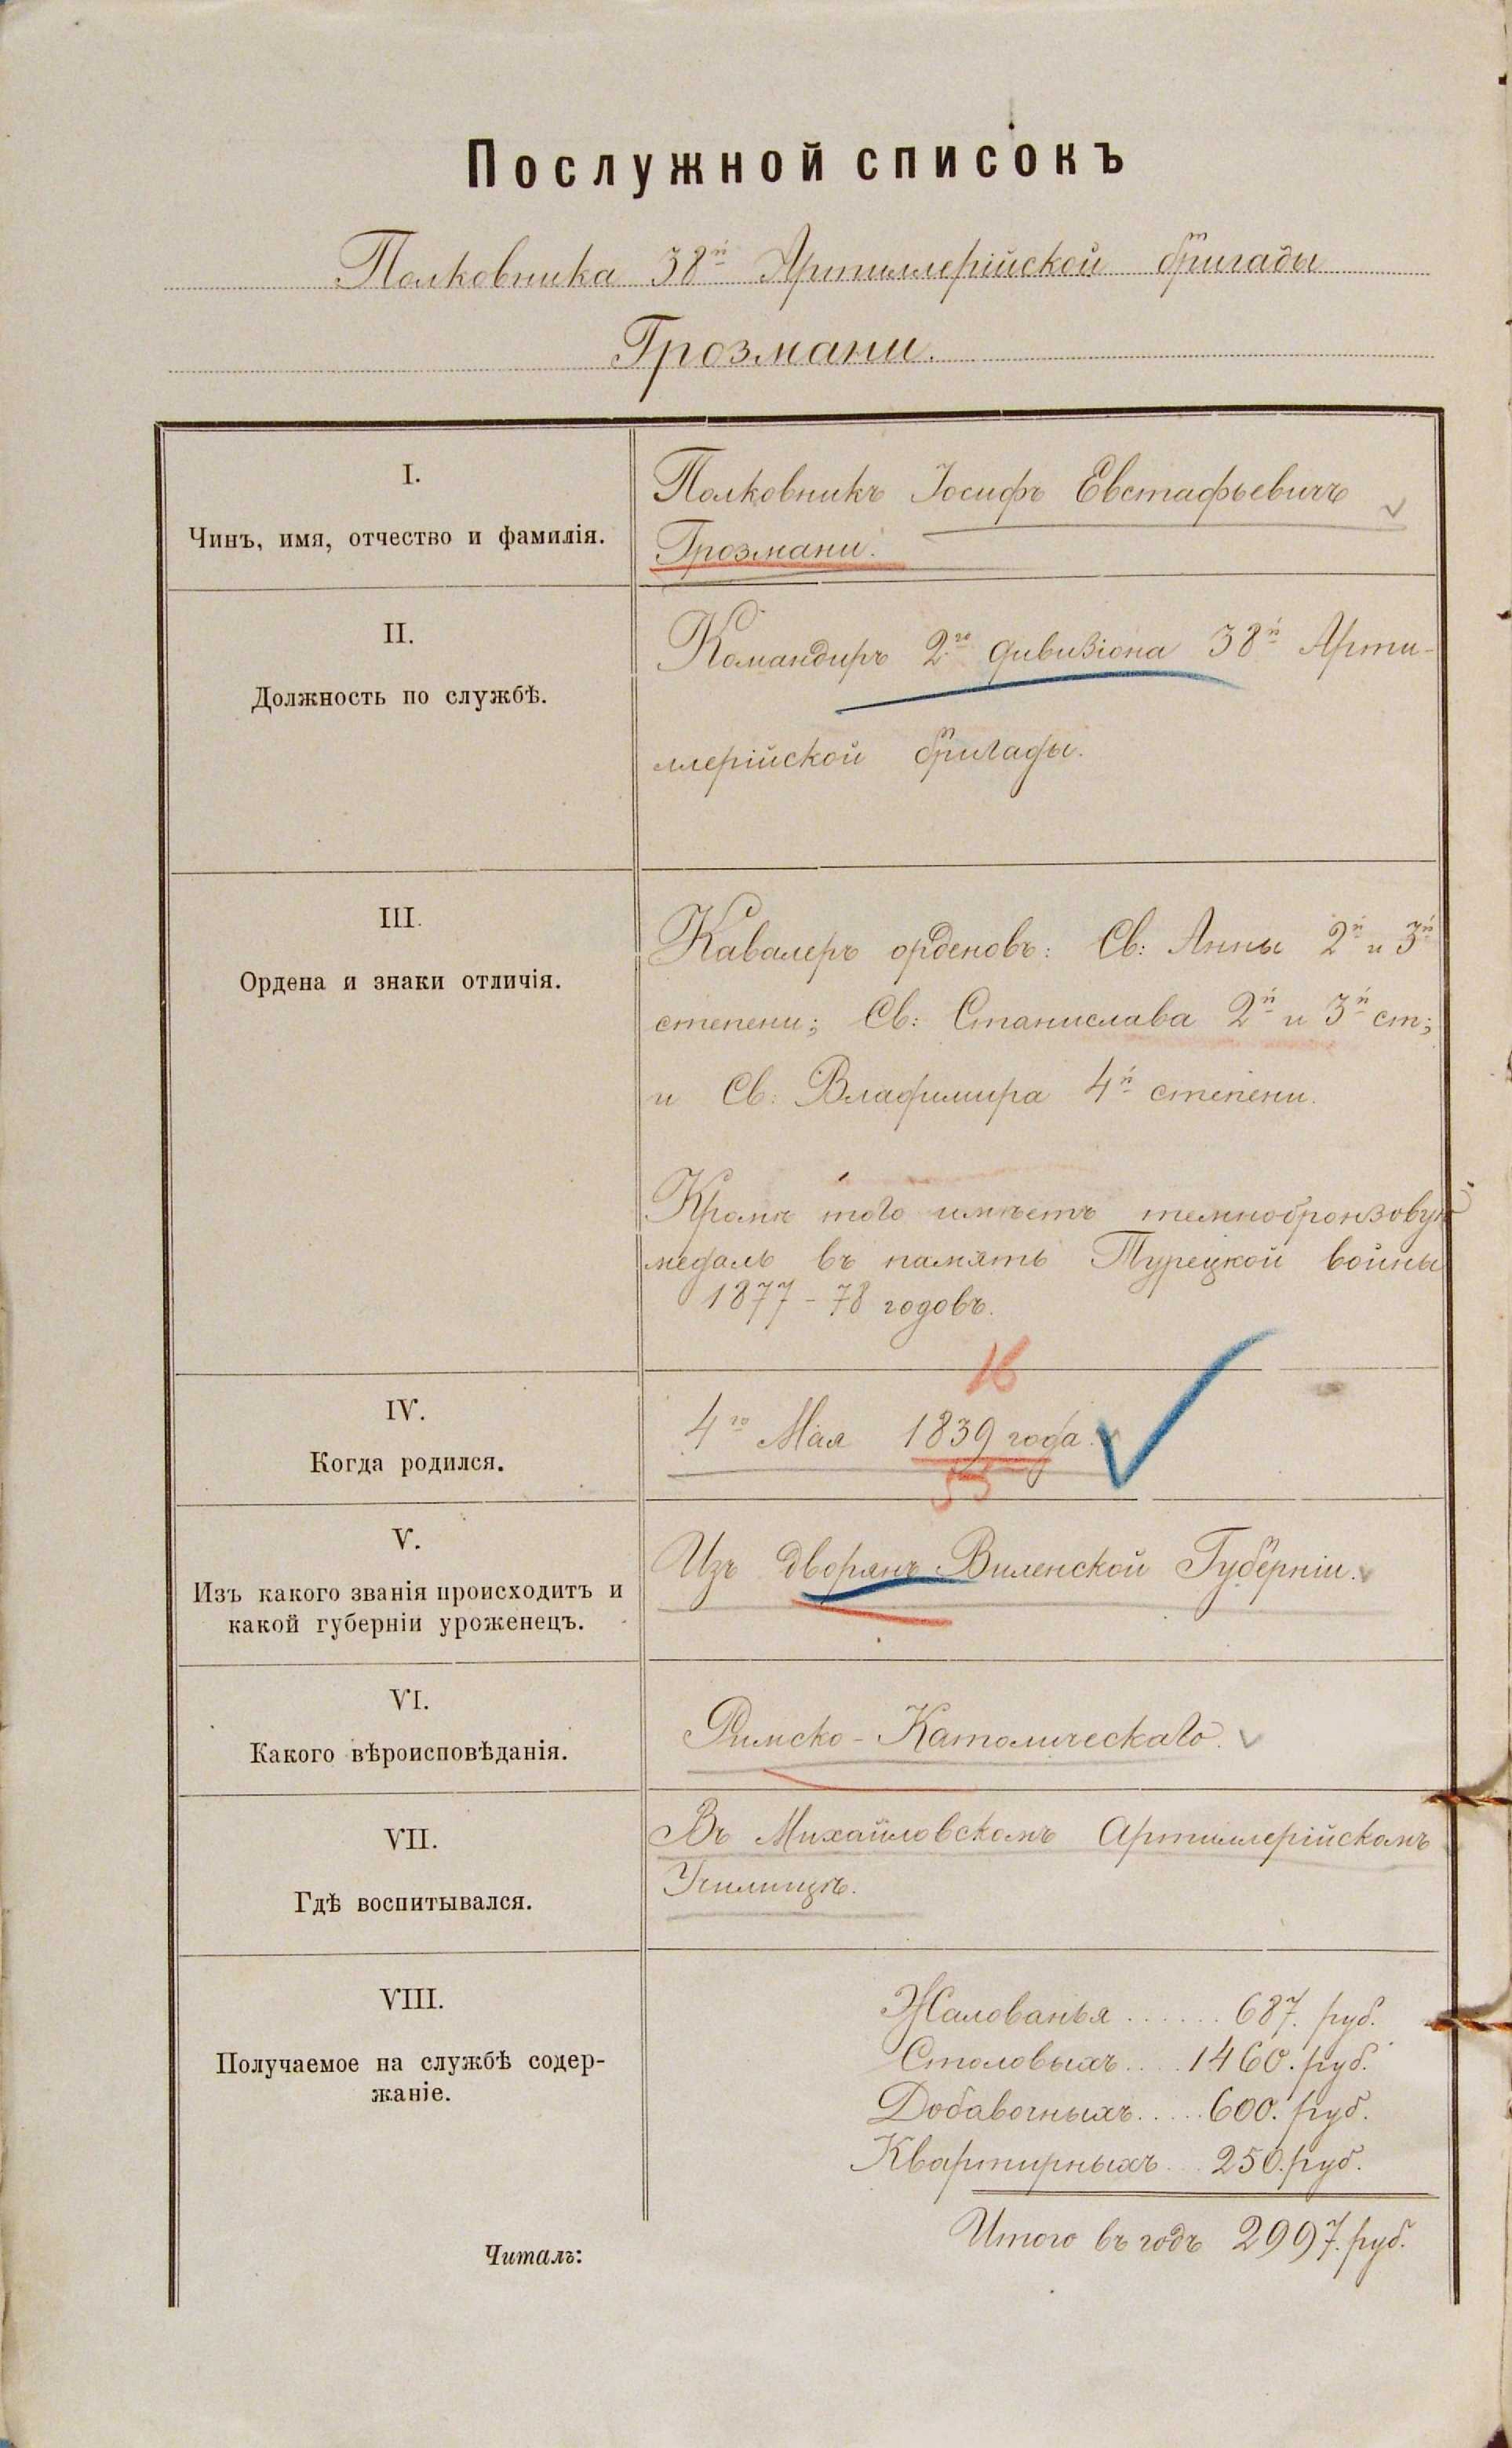 Послужной списокъ
Полковника 38й Артиллерійской бригады
Грозмани.
I.
Чинъ, имя, отчество и фамилія.
Полковникъ Іосифъ Евстафьевичъ
Грозмани.
II.
Должность по службѣ.
Командиръ 2го дивизіона 38й Арти-
ллерійской бригады.
III.
Ордена и знаки отличія.
Кавалеръ орденовъ: Св: Анны 2й и 3й
степени; Св: Станислава 2й и 3й ст;
и Св: Владимира 4й степени.
Кромѣ того имѣетъ темнобронзовую
медаль въ память Турецкой войны
1877-78 годовъ.
IV.
Когда родился.
16
4го Мая 1839 года.
55
V.
Изъ какого званія происходитъ и
какой губерніи уроженецъ.
Изъ дворянъ Виленской Губерніи.
VI.
Какого вѣроисповѣданія.
Римско-Католическаго.
VII.
Гдѣ воспитывался.
Въ Михайловскомъ Артиллерійскомъ
Училищѣ.
VIII.
Получаемое на службѣ содер-
жаніе.
Жалованья ...... 687. руб.
Столовыхъ .... 1460. руб.
Добавочныхъ ..... 600. руб.
Квартирныхъ ... 250. руб.
Итого въ годъ 2997. руб.
Читалъ: